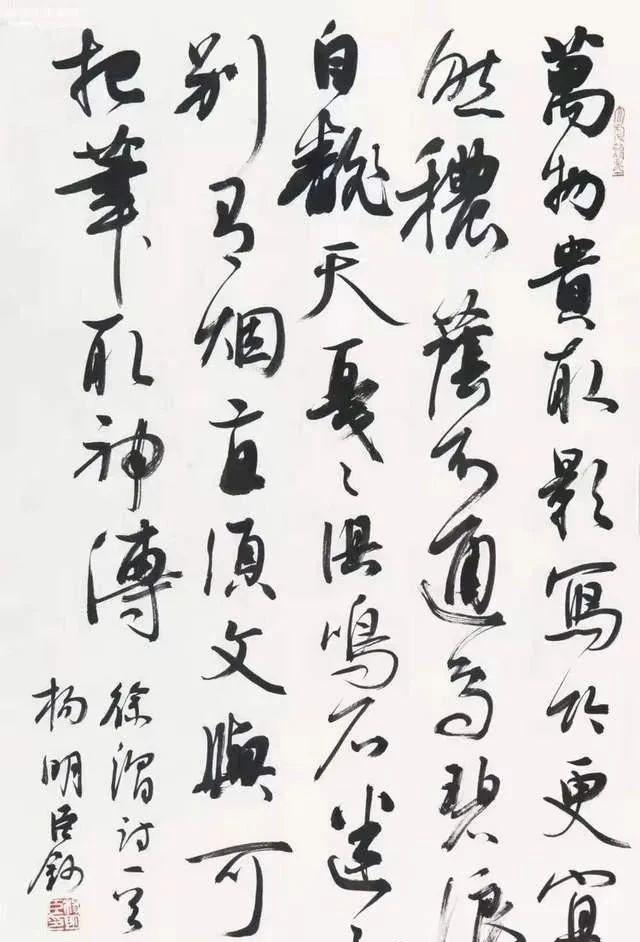 萬物貴取影寫竹更宜
然穠蔭不通鳥碧浪
自飜天戛〻俱鳴石迷〻
別有烟直須文與可
把筆取神傳
徐渭詩一首
楊明臣鈔